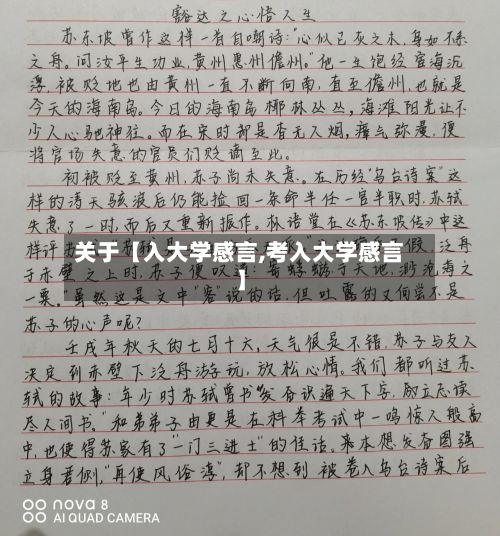 豁达之心悟人生
苏东坡曾作这样一首自嘲诗:"心似已灰之木,身如不系
之舟。问汝平生功业,黄州惠州儋州。"他一生饱经宦海沉
浮,被贬地也由黄州一直不断向南,直至儋州,也就是
今天的海南岛。今日的海南岛椰林丛丛,海滩阳光让不
少人心驰神往。而在宋时却是杳无人烟,瘴气弥漫,便
将官场失意的官员们贬谪至此。
初被贬至黄州,苏子尚未失意。在历经"乌台诗案"这
样的滔天骇浪后仍能捡回一条命半任一官半职时,苏轼
失意了一时,而后又重新振作。林语堂在《苏东坡传》中这
样评
关于【入大学感言,考入大学感言
】
假,泛舟
于赤壁之上时,苏子便叹道:"寄蜉蝣于天地,渺沧海之
一粟。"虽然这是文中"客"说的话,但吐露的又何尝不是
苏子的心声呢?
壬戌年秋天的七月十六,天气很是不错,苏子与友人
决定到赤壁下泛舟游玩,放松心情。我们都听过苏
轼的故事:年少时苏轼曾书"发奋识遍天下字,励立志读
尽人间书。"和弟弟子由更是在科举考试中一鸣惊人般高
中,也使得苏家有了"一门三进士"的佳话。本想发奋图强
立身君侧,"再使风俗淳",却不想到被卷入乌台诗案后
nova 8
AI QUAD CAMERA